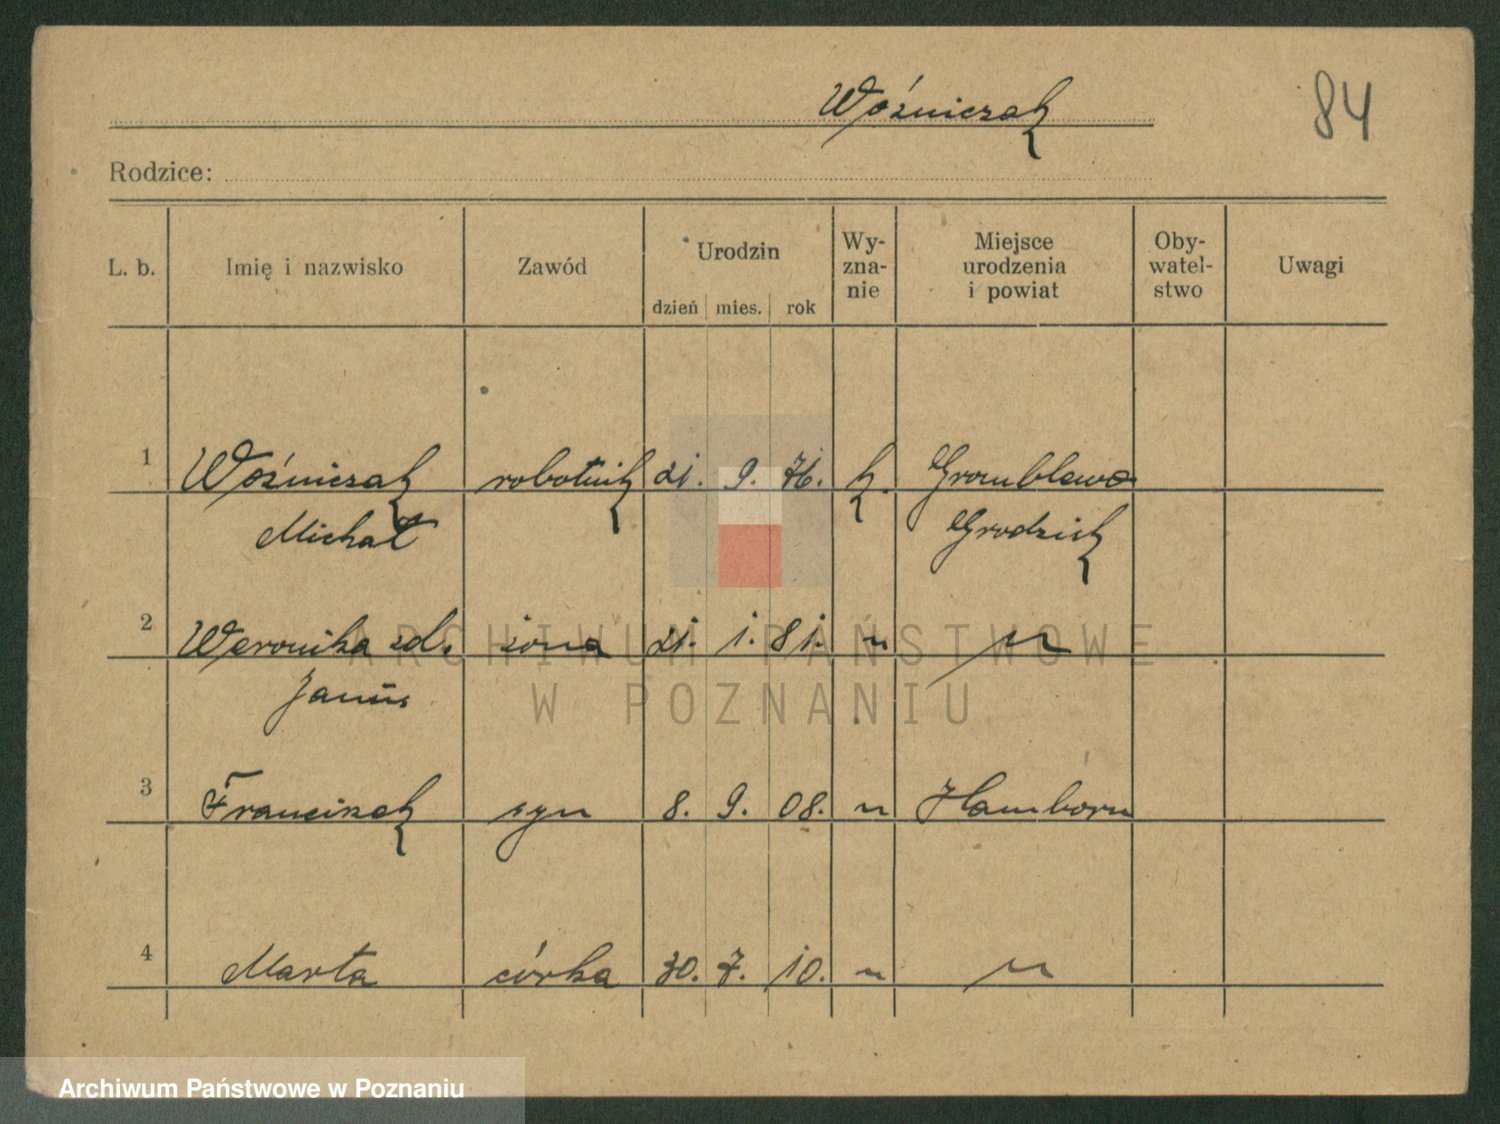 Woźniczak
84
Rodzice:
L. b. Imię i nazwisko Zawód Urodzin dzień mies. rok Wy-zna-nie Miejsce urodzenia i powiat Oby-watel-stwo Uwagi
1 Woźniczak robotnik 21. 9. 76. k. Gromblewo
Michał Grodzisk
2 Weronika zd. żona 21. 1. 81. " "
Janus
3 Franciszek syn 8. 9. 08. " Hamborn
4 Marta córka 30. 7. 10. " "
ARCHIWUM PAŃSTWOWE
W POZNANIU
Archiwum Państwowe w Poznaniu